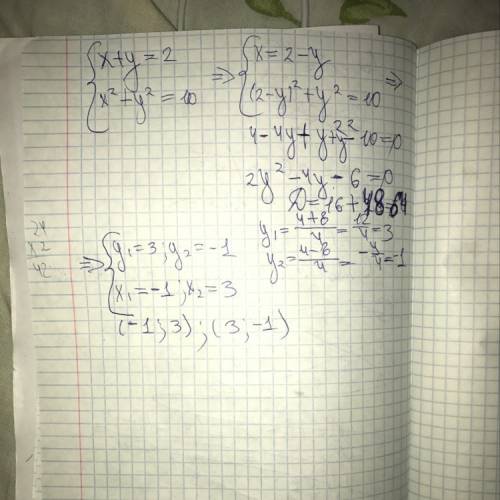 { x+y=2
x²+y²=10
=> { x=2-y
(2-y)²+y²=10 =>
4-4y+y²+y²-10=0
2y²-4y-6=0
D=16+48=64
y₁=4+8/4=12/4=3
y₂=4-8/4=-4/4=-1
24
x2
42
=> { y₁=3; y₂=-1
x₁=-1; x₂=3
(-1;3); (3;-1)